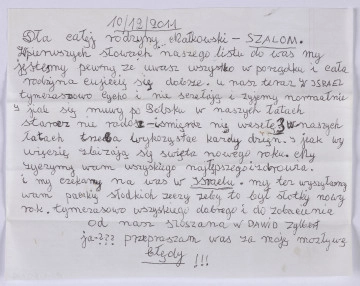 10/12/2011
Dla całej rodziny Małkowski – SZALOM.
W pierwszych słowach naszego listu do was my
jesteśmy pewny, ze uwasz wszystko w porządku i cała
rodzina czujecie się dobrze. u nas teraz w ISRAEL
tymczasowo cicho i nie strzelają i żyjemy normalnie
i jak się muwy po Polsku w naszych latach
starosz nie radosz śmierc nie wesele w naszych
latach trzeba wykozystac kazdy dzien. jak wy
wiecie zblizają się swięta nowego roku. My
zyczymy wam wszyskiego najlepszego i zdrowia.
i my czekamy na was w Israelu. my tez wysyłamy
wam paczkę słodkich rzeczy zeby to był słotki nowy
rok. tymczasowo wszyskiego dobrego i do zobaczenia
od nas Siuszana w DAWID Zylber
ja??? przepraszam was za moje możlywe
błędy !!!